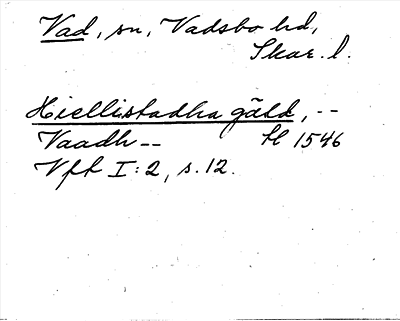 Vad, sn, Vadsbo hd,
Skar. l.
Hiellistadha gäld, --
Vaadh -- 1546
Vft I:2, s. 12.